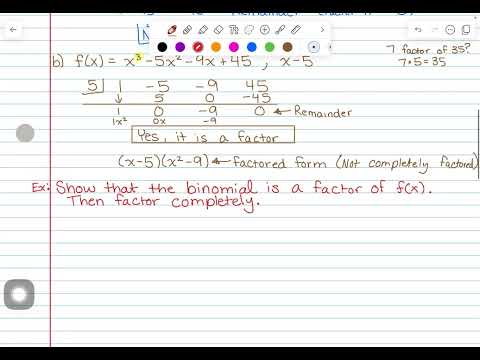 b) f(x) = x³ -5x² -9x +45 , x-5
7 factor of 35?
7•5=35
5 1 -5 -9 45
↓ 5 0 -45
1 0 -9 0 ← Remainder
1x² 0x -9
Yes, it is a factor
(x-5)(x²-9) ← factored form (Not completely factored)
Ex: Show that the binomial is a factor of f(x).
Then factor completely.